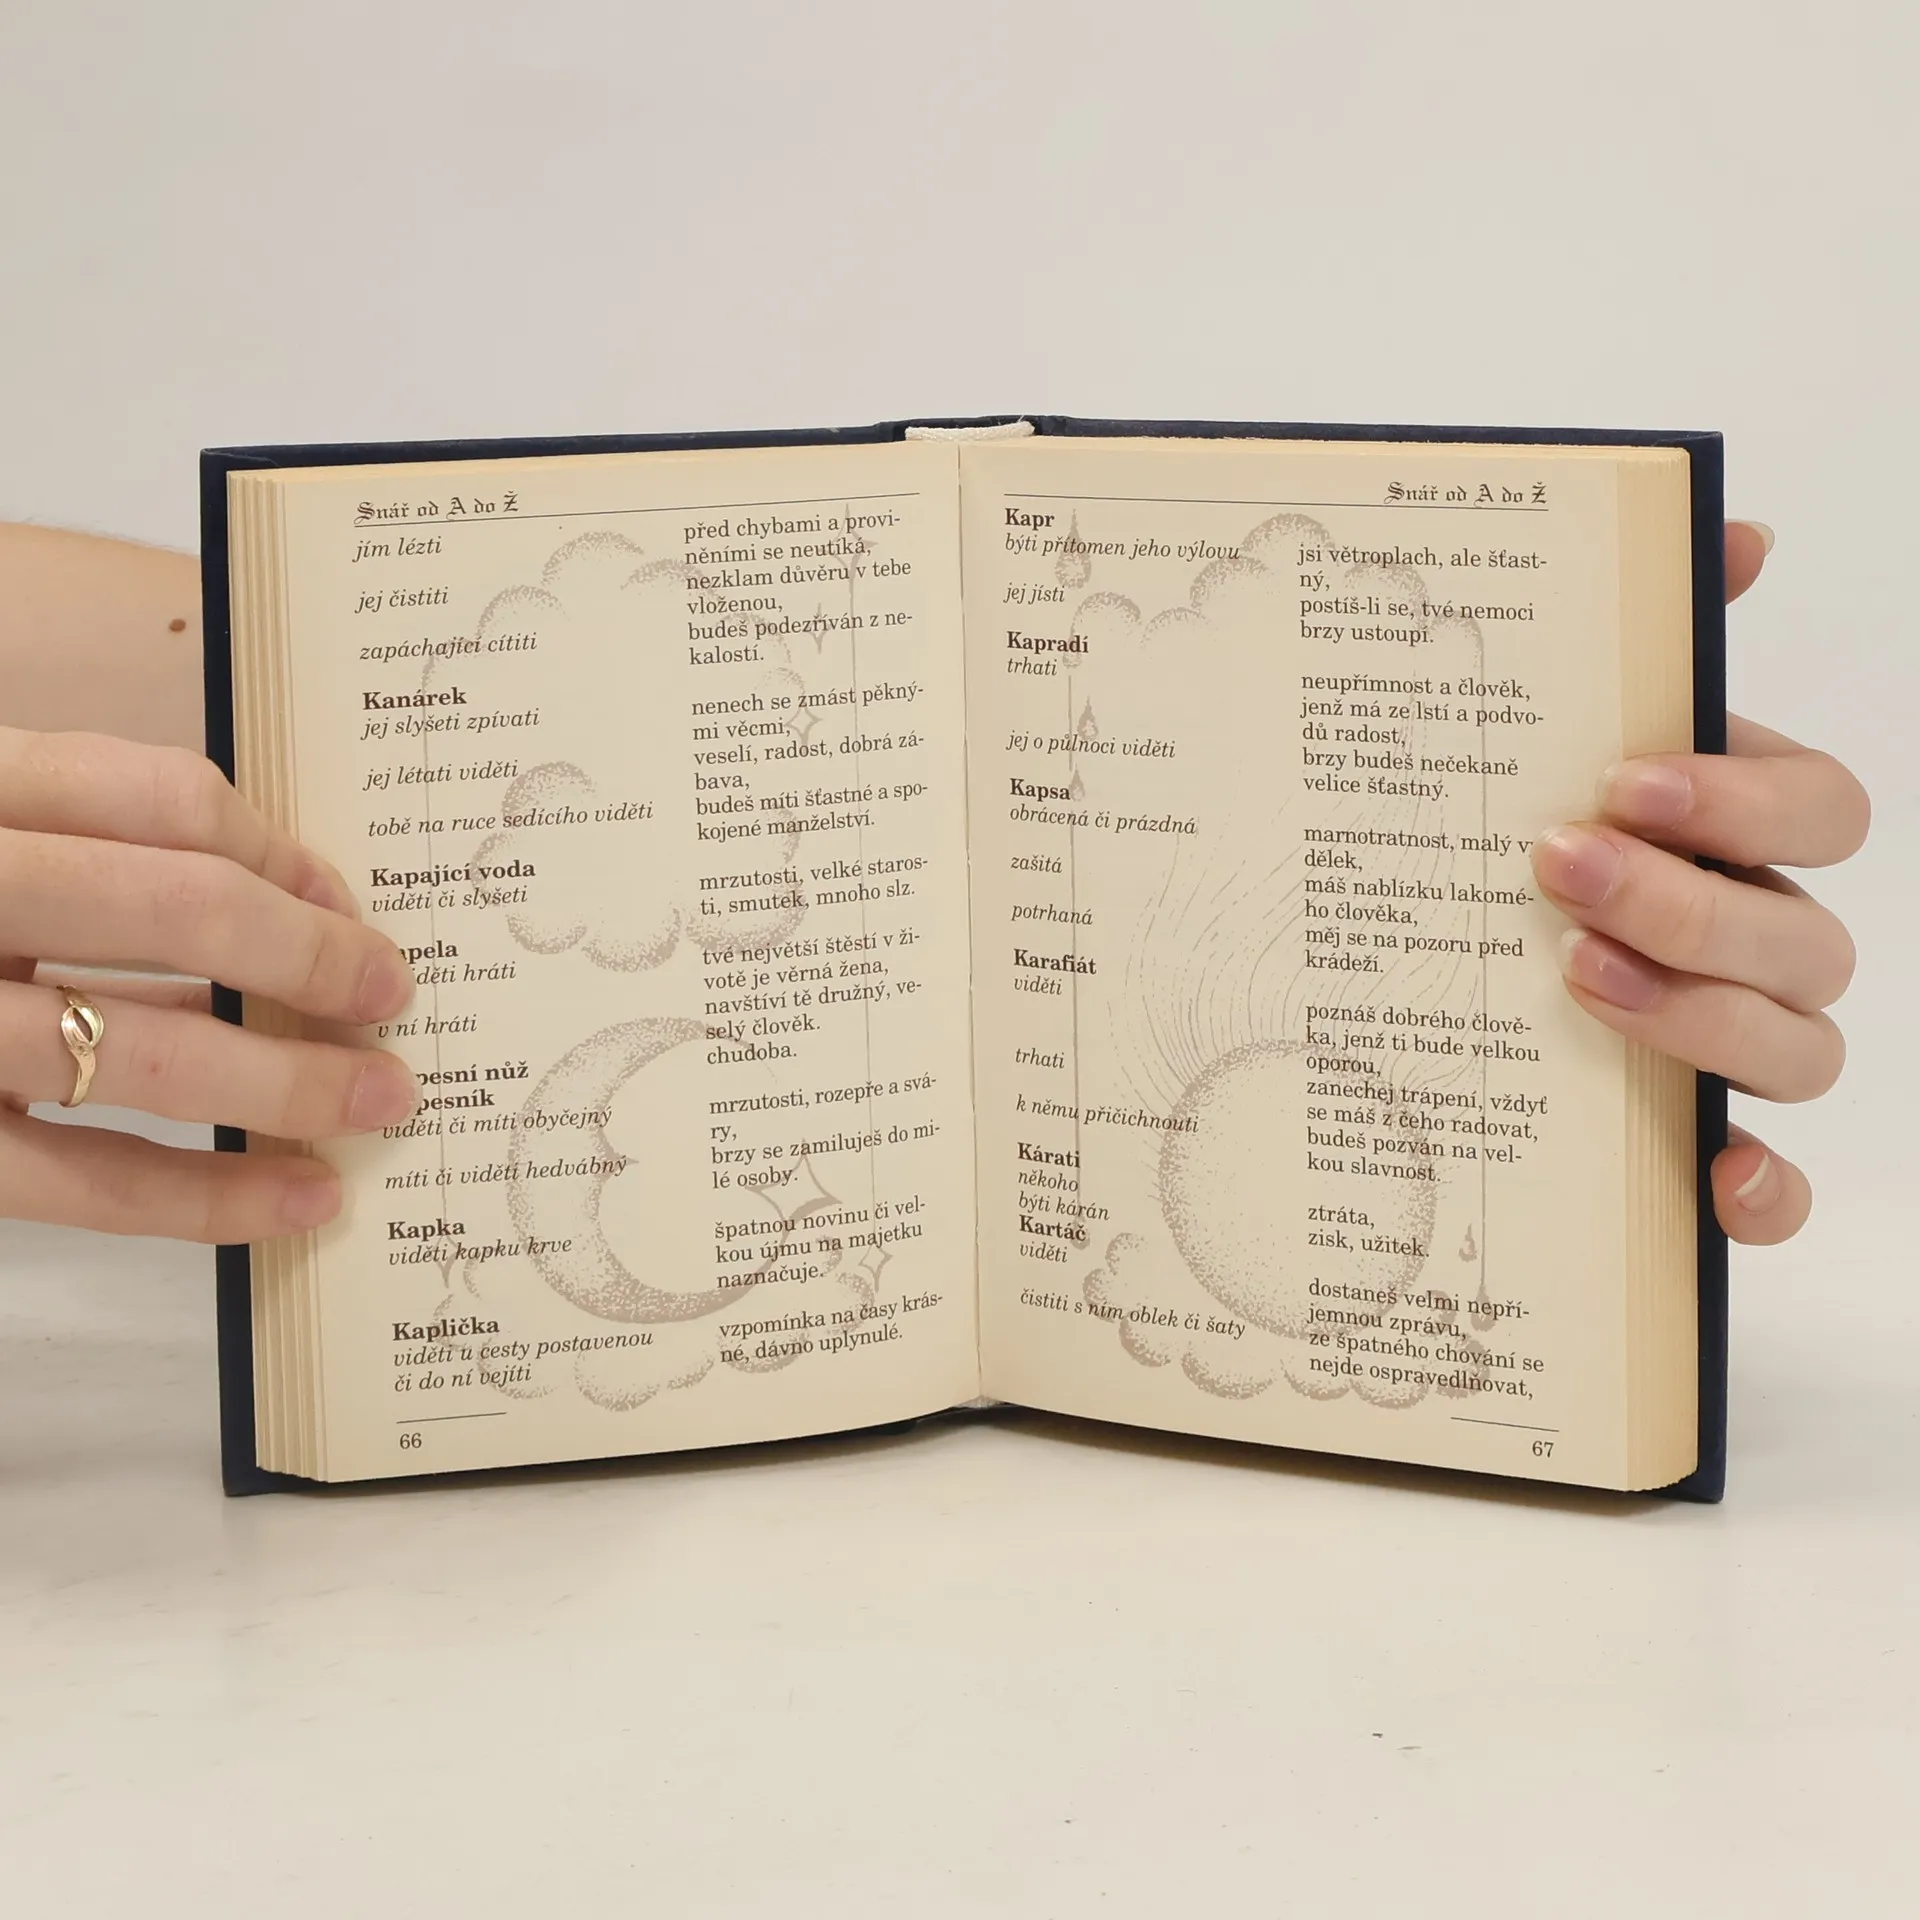 Snář od A do Ž
jím lézti
jej čistiti
zapáchající cítiti
Kanárek
jej slyšeti zpívati
jej létati viděti
tobě na ruce sedícího viděti
Kapající voda
viděti či slyšeti
hráti
v ní hráti
nůž
viděti či míti obyčejný
míti či viděti hedvábný
Kapka
viděti kapku krve
Kaplička
viděti u cesty postavenou
či do ní vejíti
před chybami a provi-
něními se neutíká,
nezklam důvěru v tebe
vloženou,
budeš podezříván z ne-
kalostí.
nenech se zmást pěkný-
mi věcmi,
veselí, radost, dobrá zá-
bava,
budeš míti šťastné a spo-
kojené manželství.
mrzutosti, velké staros-
ti, smutek, mnoho slz.
tvé největší štěstí v ži-
votě je věrná žena,
navštíví tě družný, ve-
selý člověk.
chudoba.
mrzutosti, rozepře a svá-
ry,
brzy se zamiluješ do mi-
lé osoby.
špatnou novinu či vel-
kou újmu na majetku
naznačuje.
vzpomínka na časy krás-
né, dávno uplynulé.
66
Snář od A do Ž
Kapr
býti přítomen jeho výlovu
jej jísti
Kapradí
trhati
jej o půlnoci viděti
Kapsa
obrácená či prázdná
zašitá
potrhaná
Karafiát
viděti
trhati
k němu přičichnouti
Kárati
někoho
býti kárán
Kartáč
viděti
čistiti s ním oblek či šaty
jsi větroplach, ale šťast-
ný,
postíš-li se, tvé nemoci
brzy ustoupí.
neupřímnost a člověk,
jenž má ze lstí a podvo-
dů radost,
brzy budeš nečekaně
velice šťastný.
marnotratnost, malý
dělek,
máš nablízku lakomé-
ho člověka,
měj se na pozoru před
krádeží.
poznáš dobrého člově-
ka, jenž ti bude velkou
oporou,
zanechej trápení, vždyť
se máš z čeho radovat,
budeš pozván na vel-
kou slavnost.
ztráta,
zisk, užitek.
dostaneš velmi nepří-
jemnou zprávu,
ze špatného chování se
nejde ospravedlňovat,
67